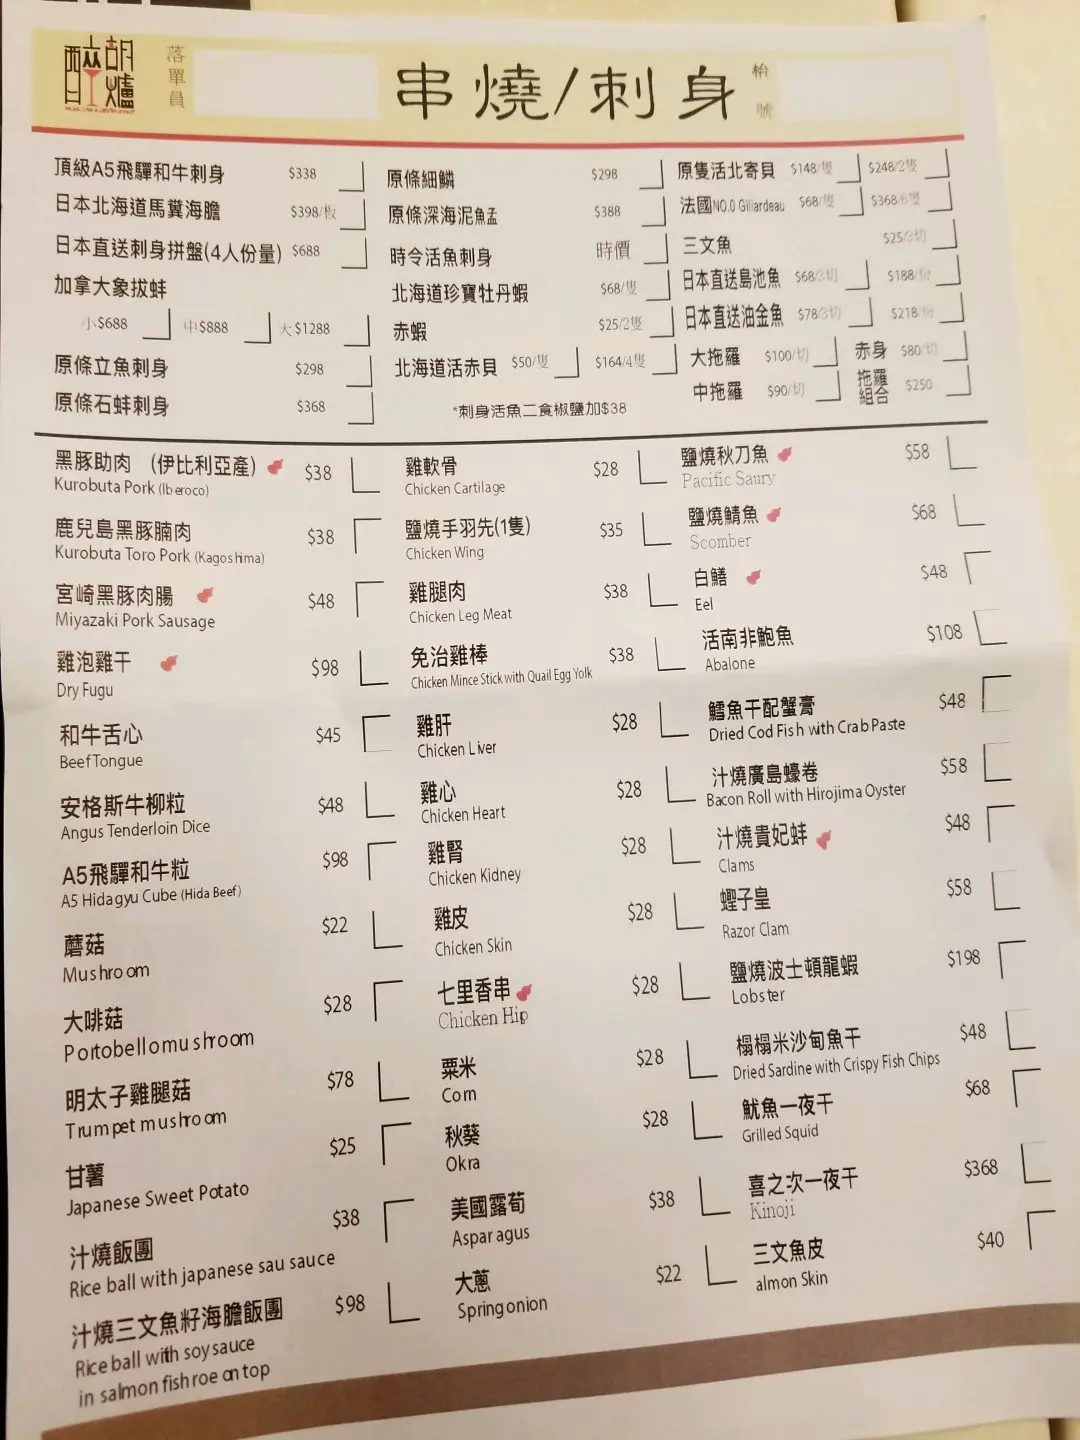 醉胡爐
落單員
串燒/刺身
枱號
頂級A5飛驒和牛刺身 $338
日本北海道馬糞海膽 $398/板
日本直送刺身拼盤(4人份量) $688
加拿大象拔蚌
小$688 中$888 大$1288
原條立魚刺身 $298
原條石蚌刺身 $368
原條細鱗 $298
原條深海泥鯭 $388
時令活魚刺身 時價
北海道珍寶牡丹蝦 $68/隻
赤蝦 $25/2隻
北海道活赤貝 $50/隻 $164/4隻
*刺身活魚二食椒鹽加$38
原隻活北寄貝 $148/隻 $248/2隻
法國NO.0 Gillardeau $68/隻 $368/6隻
三文魚 $25/3切
日本直送島池魚 $68/3切 $188/份
日本直送油金魚 $78/3切 $218/份
大拖羅 $100/切 赤身 $80/切
中拖羅 $90/切 拖羅組合 $250
黑豚助肉 (伊比利亞產) $38
Kurobuta Pork (Iberoco)
鹿兒島黑豚腩肉 $38
Kurobuta Toro Pork (Kagoshima)
宮崎黑豚肉腸 $48
Miyazaki Pork Sausage
雞泡雞干 $98
Dry Fugu
和牛舌心 $45
Beef Tongue
安格斯牛柳粒 $48
Angus Tenderloin Dice
A5飛驒和牛粒 $98
A5 Hidagyu Cube (Hida Beef)
蘑菇 $22
Mushroom
大啡菇 $28
Portobello mushroom
明太子雞腿菇 $78
Trumpet mushroom
甘薯 $25
Japanese Sweet Potato
汁燒飯團 $38
Rice ball with japanese sau sauce
汁燒三文魚籽海膽飯團 $98
Rice ball with soy sauce
in salmon fish roe on top
雞軟骨 $28
Chicken Cartilage
鹽燒手羽先(1隻) $35
Chicken Wing
雞腿肉 $38
Chicken Leg Meat
免治雞棒 $38
Chicken Mince Stick with Quail Egg Yolk
雞肝 $28
Chicken Liver
雞心 $28
Chicken Heart
雞腎 $28
Chicken Kidney
雞皮 $28
Chicken Skin
七里香串 $28
Chicken Hip
粟米 $28
Corn
秋葵 $28
Okra
美國露荀 $38
Asparagus
大蔥 $22
Spring onion
鹽燒秋刀魚 $58
Pacific Saury
鹽燒鯖魚 $68
Scomber
白鱔 $48
Eel
活南非鮑魚 $108
Abalone
鱈魚干配蟹膏 $48
Dried Cod Fish with Crab Paste
汁燒廣島蠔卷 $58
Bacon Roll with Hirojima Oyster
汁燒貴妃蚌 $48
Clams
蟶子皇 $58
Razor Clam
鹽燒波士頓龍蝦 $198
Lobster
榻榻米沙甸魚干 $48
Dried Sardine with Crispy Fish Chips
魷魚一夜干 $68
Grilled Squid
喜之次一夜干 $368
Kinoji
三文魚皮 $40
almon Skin